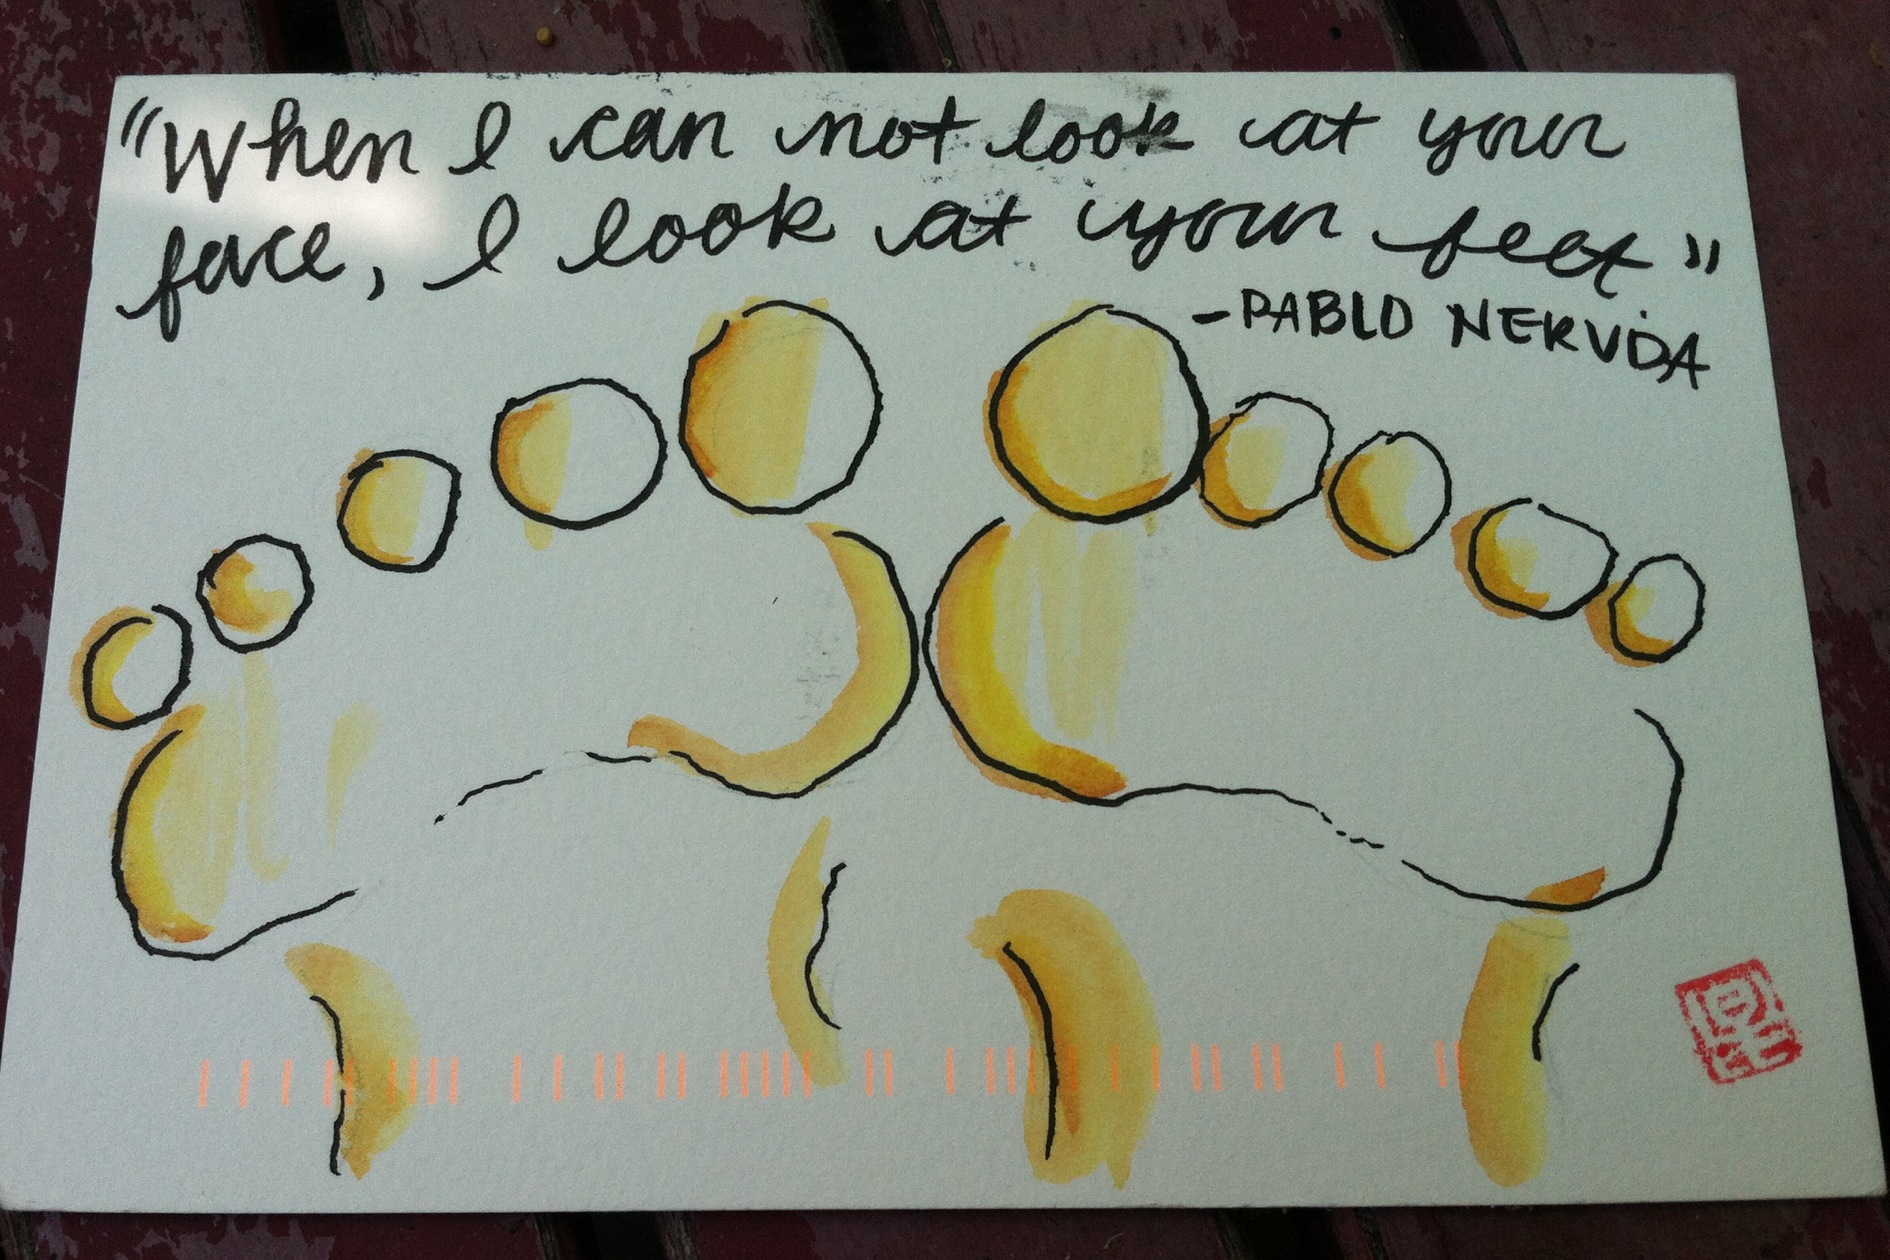 "When I can not look at your
face, I look at your feet"
-PABLO NERUDA